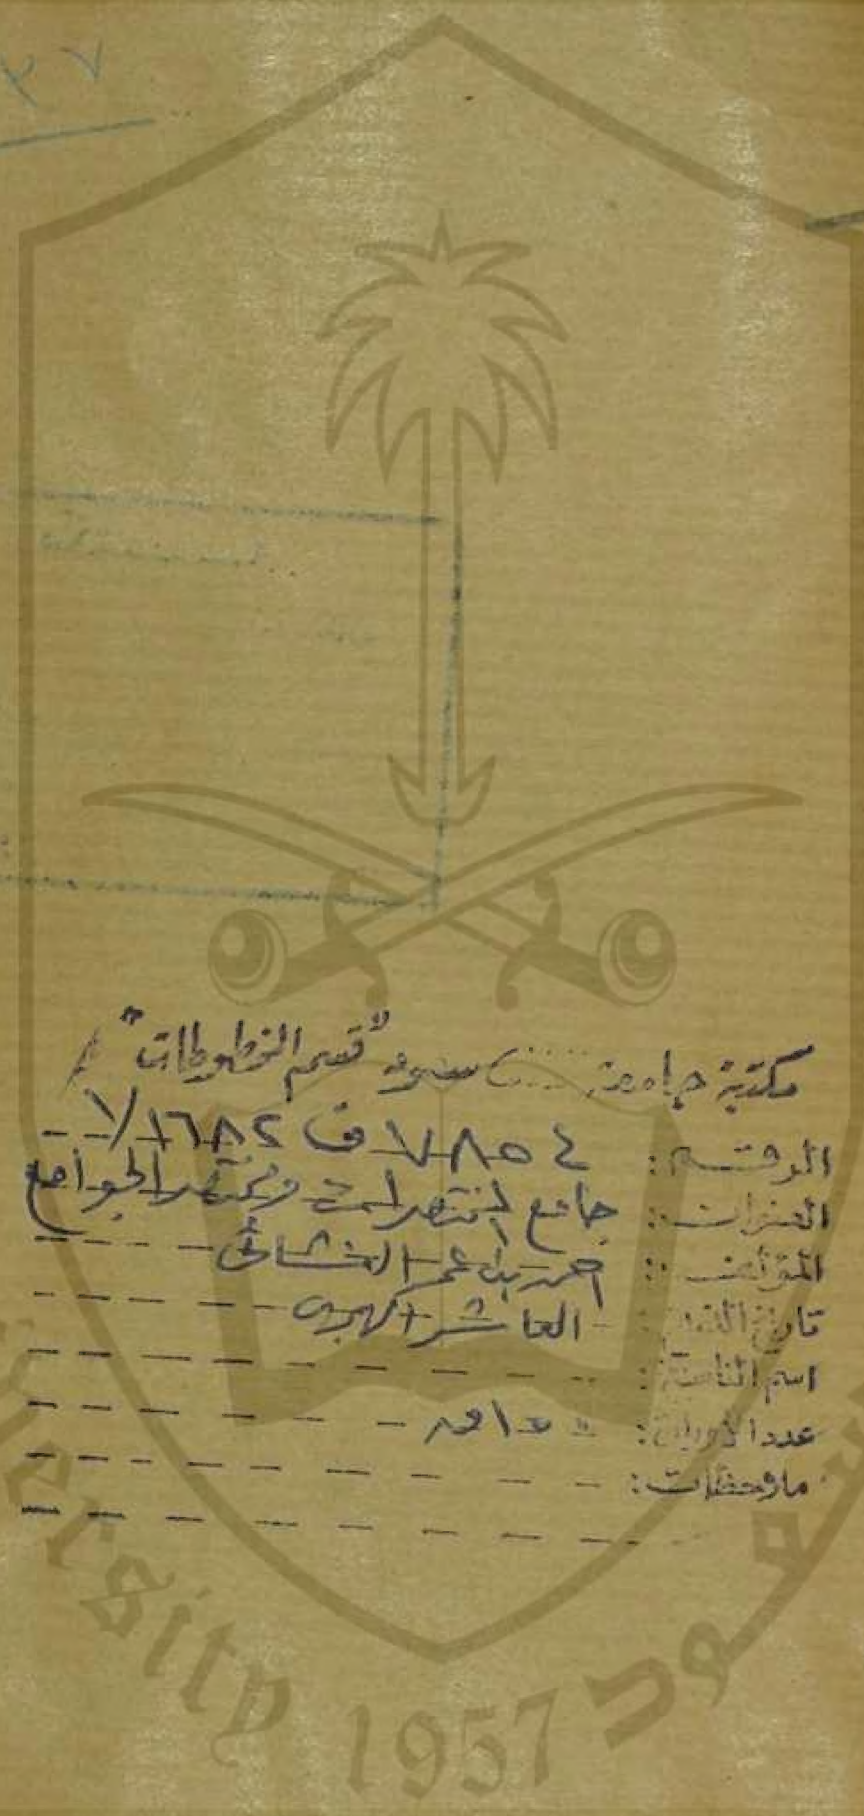 ٧٣
مكتبة جامعة سعود "قسم المخطوطات"
الرقم: ٧٨٥٤ ف ١٦٨٢/٧
العنوان: جامع المختصرات ومختصر الجوامع
المؤلف: احمد بن عمر النشائي
تاريخ النسخ: العاشر الهجري
اسم الناسخ:
عدد الأوراق:
ملاحظات:
ersity 1957 سعود